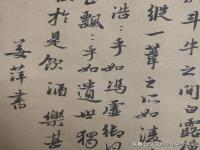 斗牛之間白露
縱一葦之所如凌
浩〻乎如馮虛御
飄〻乎如遺世獨
於是飲酒樂甚
姜萍書